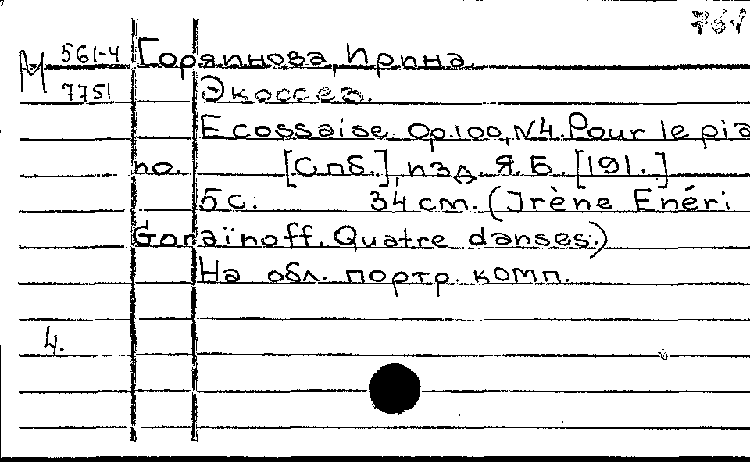 М 561-4 Горяинова, Ирина.
7751 Экоссез.
Ecossaise. Op.100, N4. Pour le pia
no. [Спб.], изд. Я. Б. [191.]
5 с. 34 см. (Irène Enéri
Goraïnoff. Quatre danses.)
На обл. портр. комп.
4.